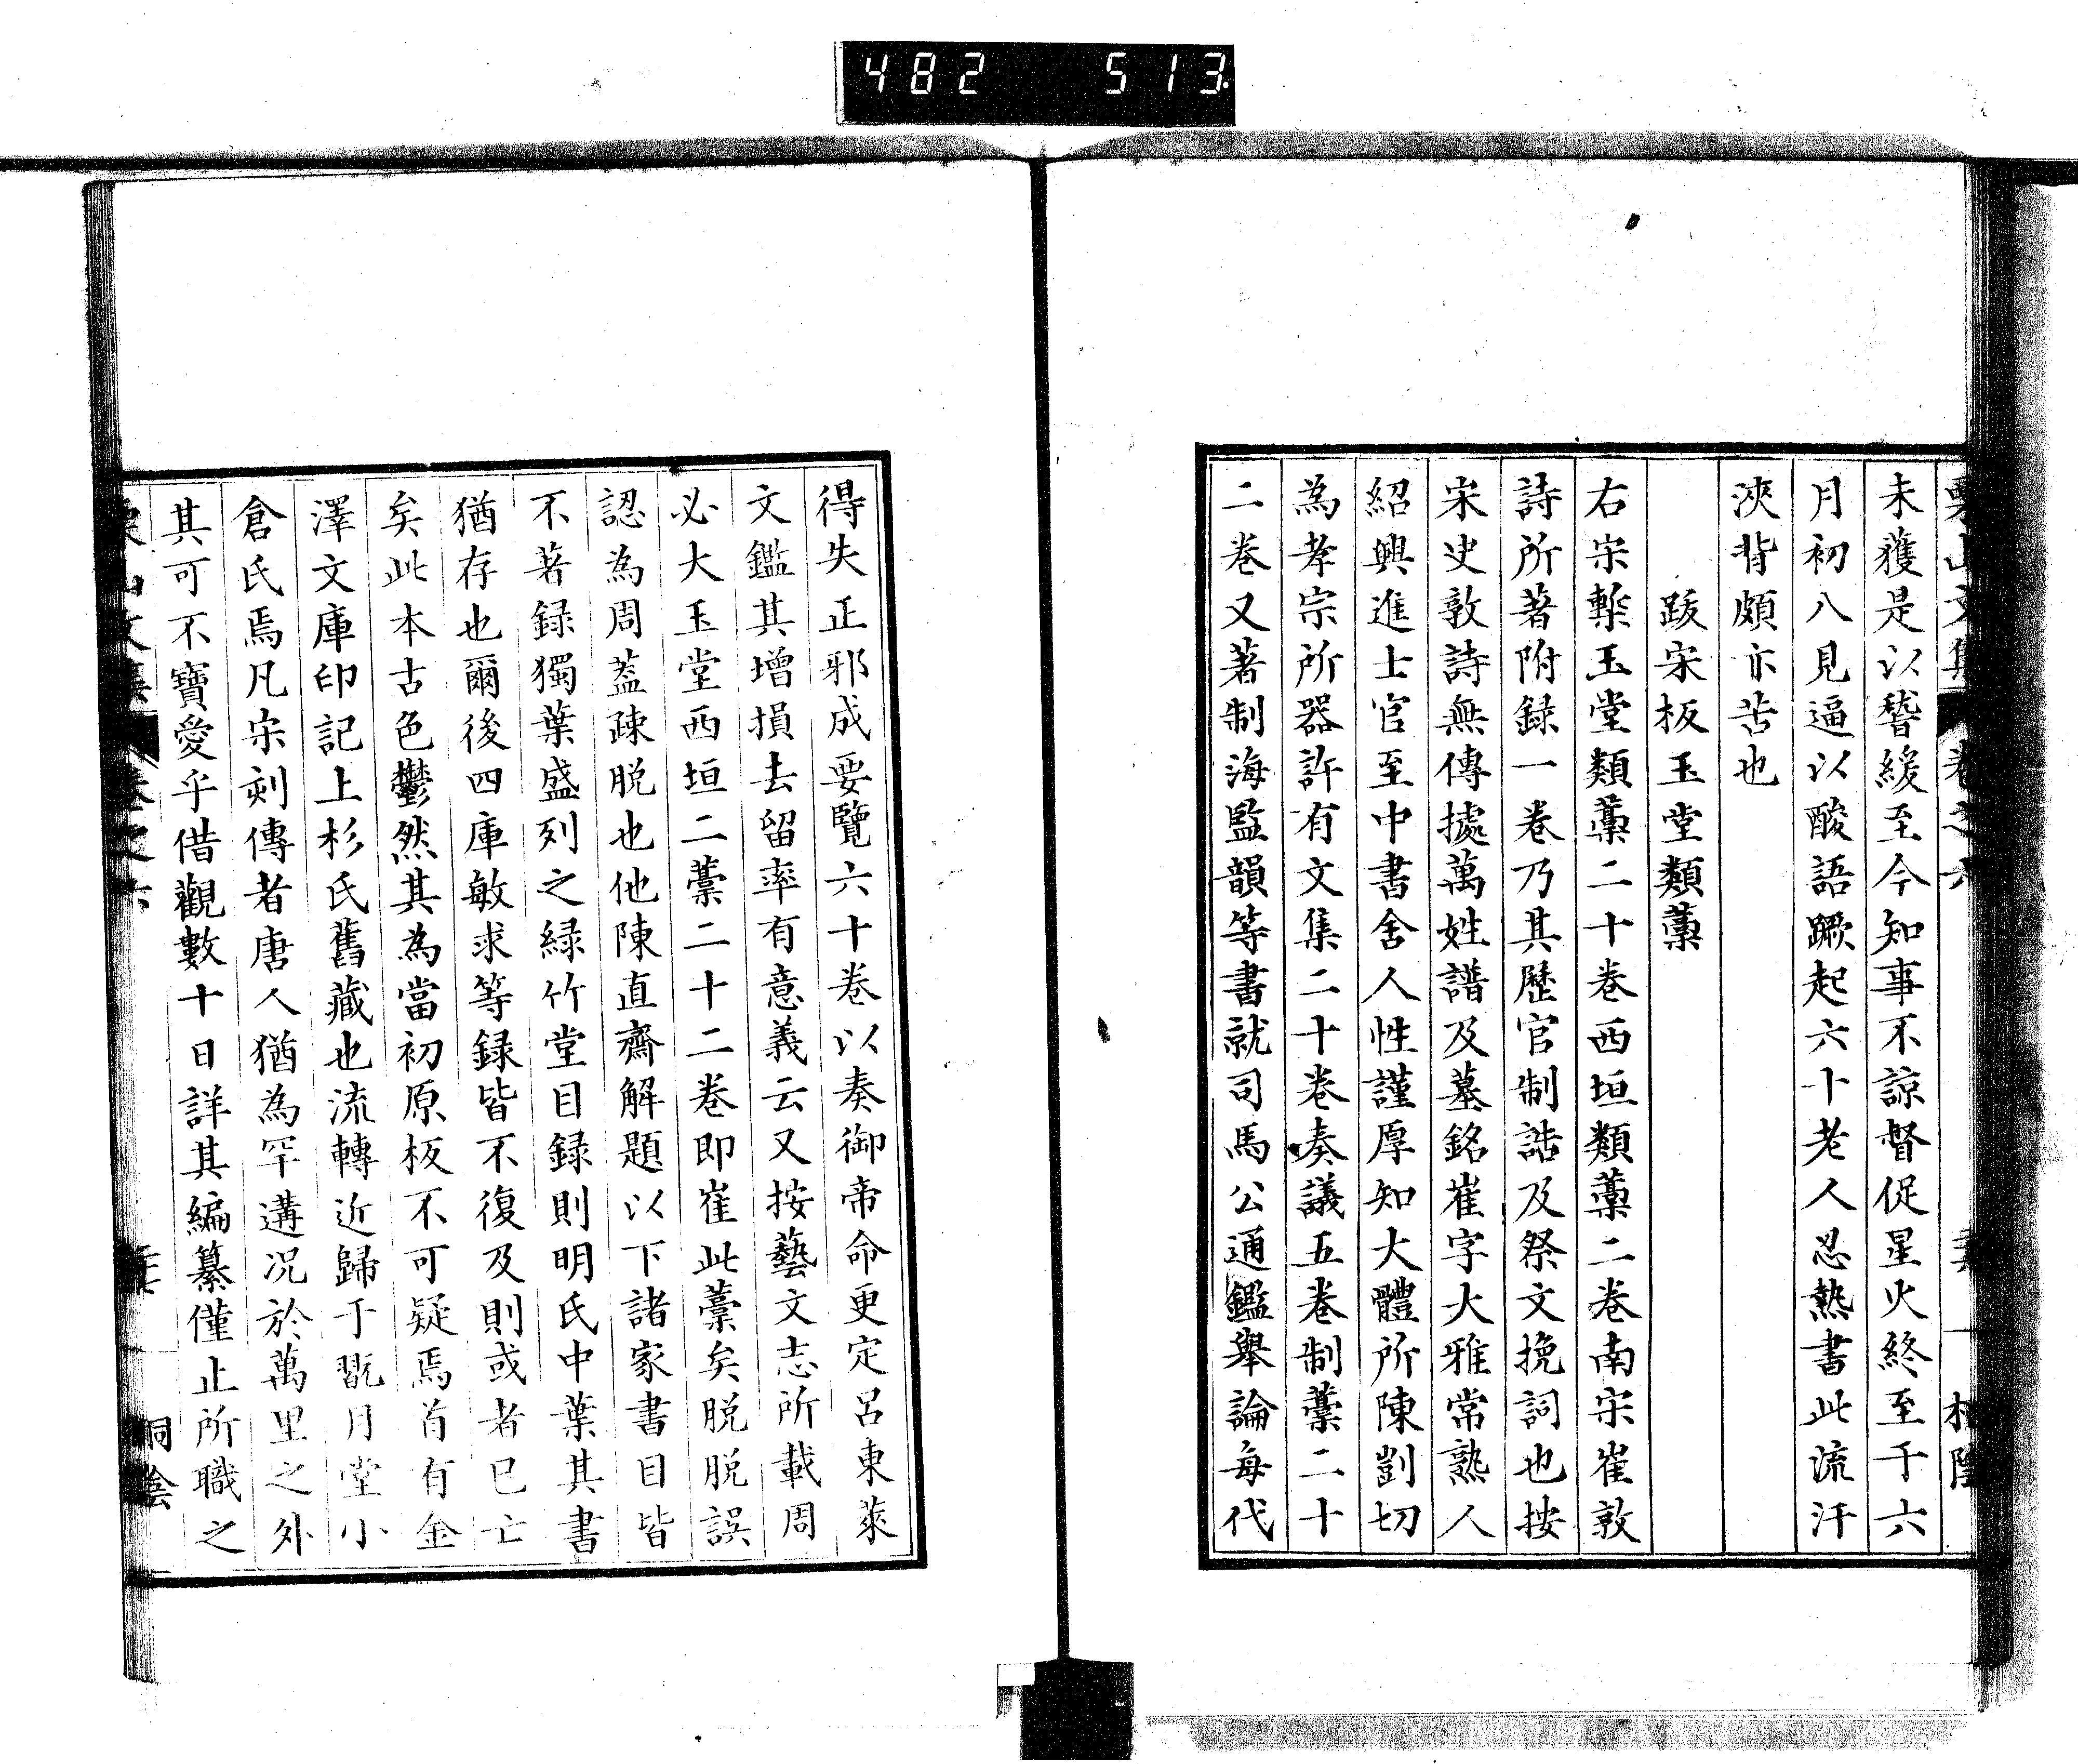 482 513
未獲是以稽緩至今知事不諒督促星火終至于六
月初八見逼以酸語蹶起六十老人忍熱書此流汗
浹背頗亦苦也
跋宋板玉堂類藁
右宋槧玉堂類藁二十卷西垣類藁二卷南宋崔敦
詩所著附録一卷乃其歷官制誥及祭文挽詞也按
宋史敦詩無傳據萬姓譜及墓銘崔字大雅常熟人
紹興進士官至中書舍人性謹厚知大體所陳剴切
為孝宗所器許有文集二十卷奏議五卷制藁二十
二卷又著制海監韻等書就司馬公通鑑舉論每代
得失正邪成要覽六十卷以奏御帝命更定呂東萊
文鑑其增損去留率有意義云又按藝文志所載周
必大玉堂西垣二藁二十二卷即崔此藁矣脱脱誤
認為周蓋疎脱也他陳直齋解題以下諸家書目皆
不著録獨葉盛列之緑竹堂目録則明氏中葉其書
猶存也爾後四庫敏求等録皆不復及則或者已亡
矣此本古色鬱然其為當初原板不可疑焉首有金
澤文庫印記上杉氏舊藏也流轉近歸于翫月堂小
倉氏焉凡宋剡傳者唐人猶為罕遘况於萬里之外
其可不寶愛乎借觀數十日詳其編纂僅止所職之